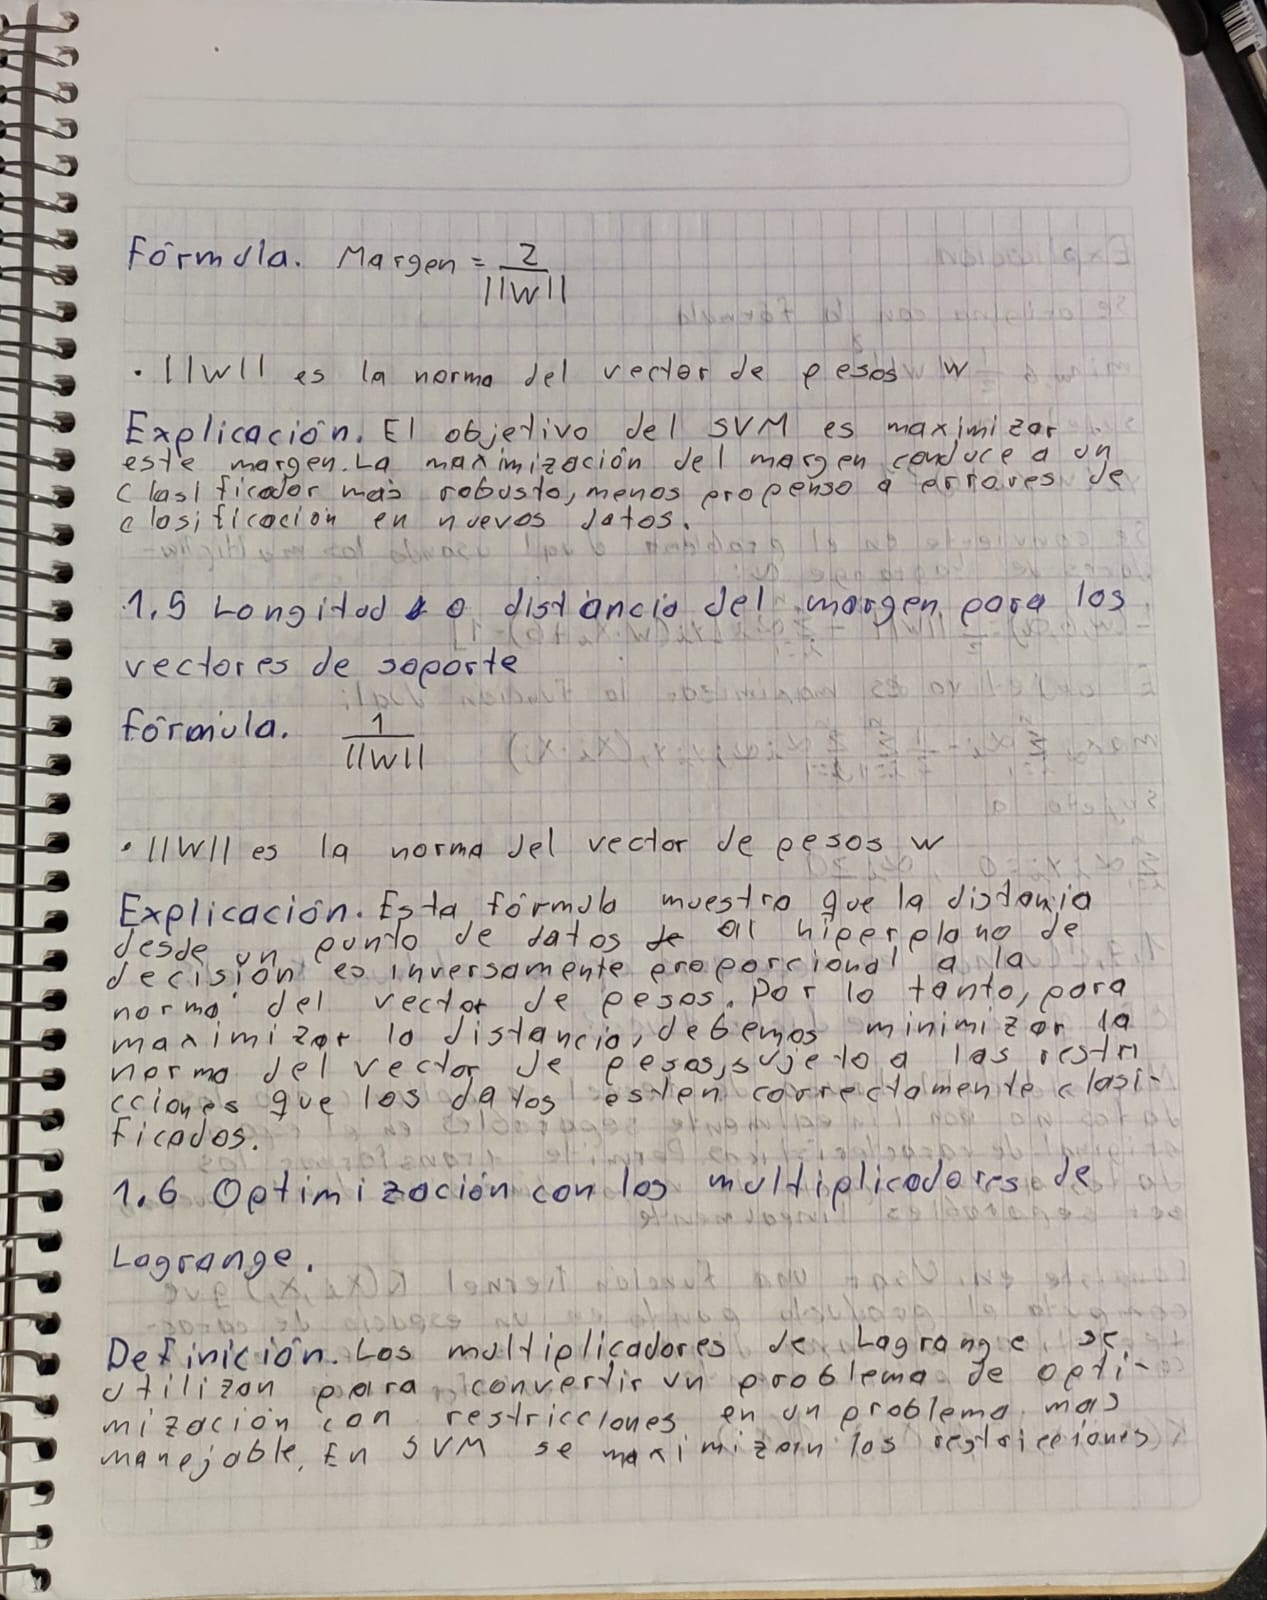 Fórmula. Margen = 2/||W||
• ||W|| es la norma del vector de pesos W
Explicación. El objetivo del SVM es maximizar
este margen. La maximización del margen conduce a un
clasificador más robusto, menos propenso a errores de
clasificación en nuevos datos.
1.5 Longitud o distancia del margen para los
vectores de soporte
fórmula. 1/||W||
• ||W|| es la norma del vector de pesos w
Explicación. Esta fórmula muestra que la distancia
desde un punto de datos al hiperplano de
decisión es inversamente proporcional a la
norma del vector de pesos. Por lo tanto, para
maximizar la distancia, debemos minimizar la
norma del vector de pesos, sujeto a las restri
cciones que los datos esten correctamente clasi-
ficados.
1.6 Optimización con los multiplicadores de
Lagrange.
Definición. Los multiplicadores de Lagrange se
utilizan para convertir un problema de opti-
mización con restricciones en un problema mas
manejable. En SVM se maximizan los restricciones